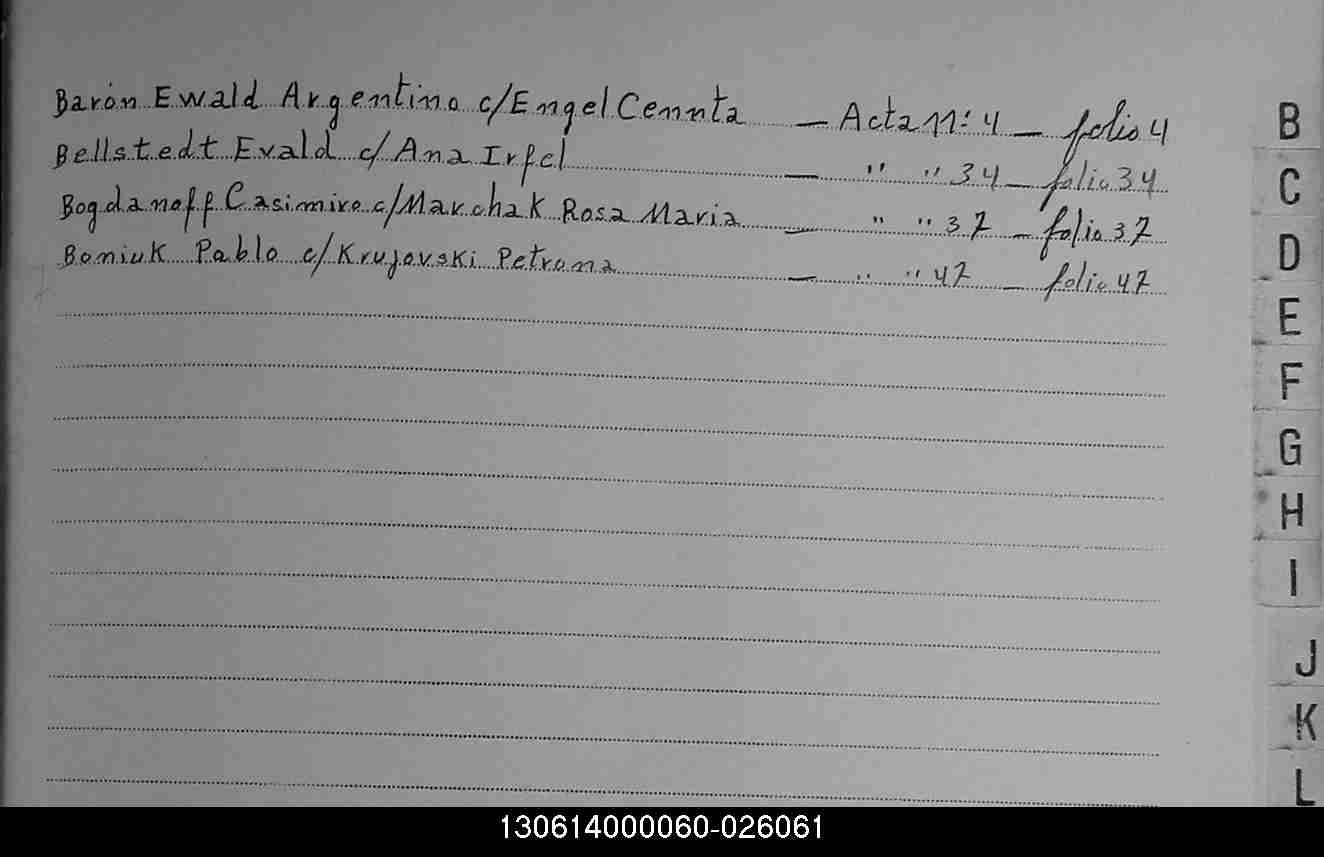 Barón Ewald Argentino c/Engel Cennta — Acta nº: 4 — folio 4
Bellstedt Evald c/ Ana Irfel — " " 34 — folio 34
Bogdanoff Casimiro c/Marchak Rosa Maria — " " 37 — folio 37
Boniuk Pablo c/Krujovski Petrona — " " 47 — folio 47
B
C
D
E
F
G
H
I
J
K
L
130614000060-026061